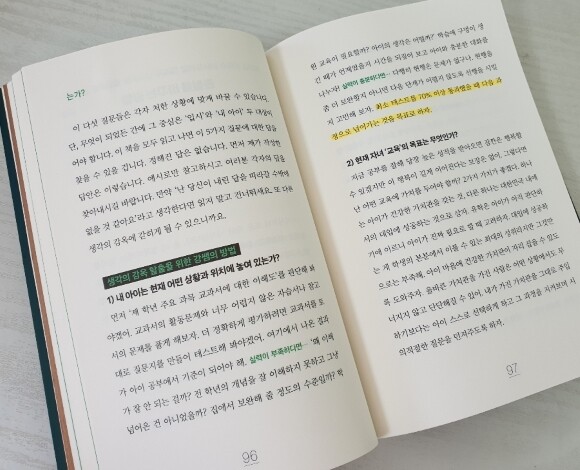 는가?
이 다섯 질문들은 각자 처한 상황에 맞게 바꿀 수 있습니다.
단, 무엇이 되었든 간에 그 중심은 '입시'와 '내 아이' 두 대상이
어야 합니다. 이 책을 모두 읽고 나면 이 5가지 질문에 대한 답을
찾을 수 있을 겁니다. 정해진 답은 없습니다. 먼저 제가 작성한
답안은 이렇습니다. 예시로만 참고하시고 여러분 각자의 답을
찾아내시길 바랍니다. 만약 '난 당신이 내린 답을 따라갈 수밖에
없을 것 같아요'라고 생각한다면 읽지 말고 건너뛰세요. 또 다른
생각의 감옥에 갇히게 될 수 있으니까요.
생각의 감옥 탈출을 위한 강쌤의 방법
1) 내 아이는 현재 어떤 상황과 위치에 놓여 있는가?
먼저 '제 학년 주요 과목 교과서에 대한 이해도'를 판단해 봐
야겠어. 교과서의 활동문제와 너무 어렵지 않은 자습서나 참고
서의 문제를 풀게 해보자. 더 정확하게 평가하려면 교과서를 토
대로 질문지를 만들어 테스트해 봐야겠어. 여기에서 나온 결과
가 아이 공부에서 기준이 되어야 해. 실력이 부족하다면… '왜 이해
가 잘 안 되는 걸까? 전 학년의 개념을 잘 이해하지 못하고 그냥
넘어온 건 아니었을까? 집에서 보완해 줄 정도의 수준일까? 학
96
원 교육이 필요할까? 아이의 생각은 어떨까?' 학습에 구멍이 생
긴 때가 언제였을지 시간을 되짚어 보고 아이와 충분한 대화를
나누자! 실력이 충분하다면… 다행히 현행은 문제가 없구나. 현행을
좀 더 보완할지 아니면 다음 단계가 어렵지 않도록 선행을 시킬
지 고민해 보자. 최소 테스트를 70% 이상 통과했을 때 다음 과
정으로 넘어가는 것을 목표로 하자.
2) 현재 자녀 '교육'의 목표는 무엇인가?
지금 공부를 잘해 당장 높은 성적을 받아오면 일단은 행복할
수 있겠지만 이 행복이 길게 이어진다는 보장은 없어. 그렇다면
난 어떤 교육에 가치를 두어야 할까? 2가지 가치가 공존해. 하나
는 아이가 건강한 가치관을 갖는 것, 다른 하나는 대한민국 내에
서의 대입에 성공하는 것으로 삼자. 유학은 아이가 아직 판단하
기에 어리니 아이가 진짜 필요로 할 때 고려하자. 대입에 성공하
는 게 학생의 본분에서 이룰 수 있는 최대의 성취이지만 그것만
으로는 부족해. 아이 마음에 건강한 가치관이 자리 잡을 수 있도
록 도와주자. 올바른 가치관을 가진 사람은 어떤 상황에서도 무
너지지 않고 단단해질 수 있어. 내가 가진 가치관을 그대로 주입
하기보다는 아이 스스로 선택하게 하고 그 과정을 지켜보며 시
의적절한 질문을 던져주도록 하자.
97